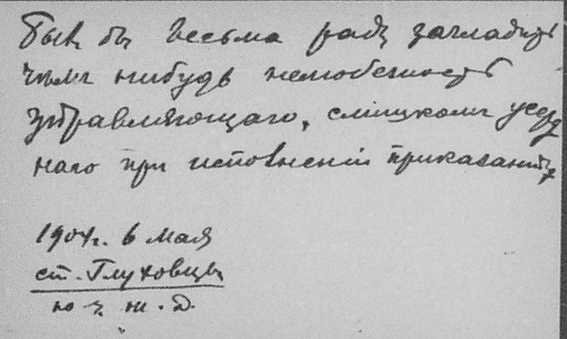 былъ бы весьма радъ загладить
чѣмъ нибудь нелюбезность
управляющаго, слишкомъ усерд
наго при исполненіи приказаній,
1904г. 6 мая
ст. Глуховцы
ю з ж. д.